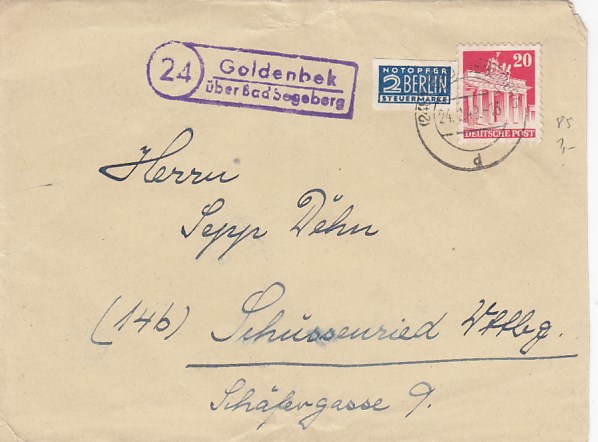 24
Goldenbek
über Bad Segeberg
NOTOPFER
2 BERLIN
STEUERMARKE
20
DEUTSCHE POST
d
Herrn
Sepp Dehn
(14b) Schussenried Wttbg.
Schäfergasse 9.